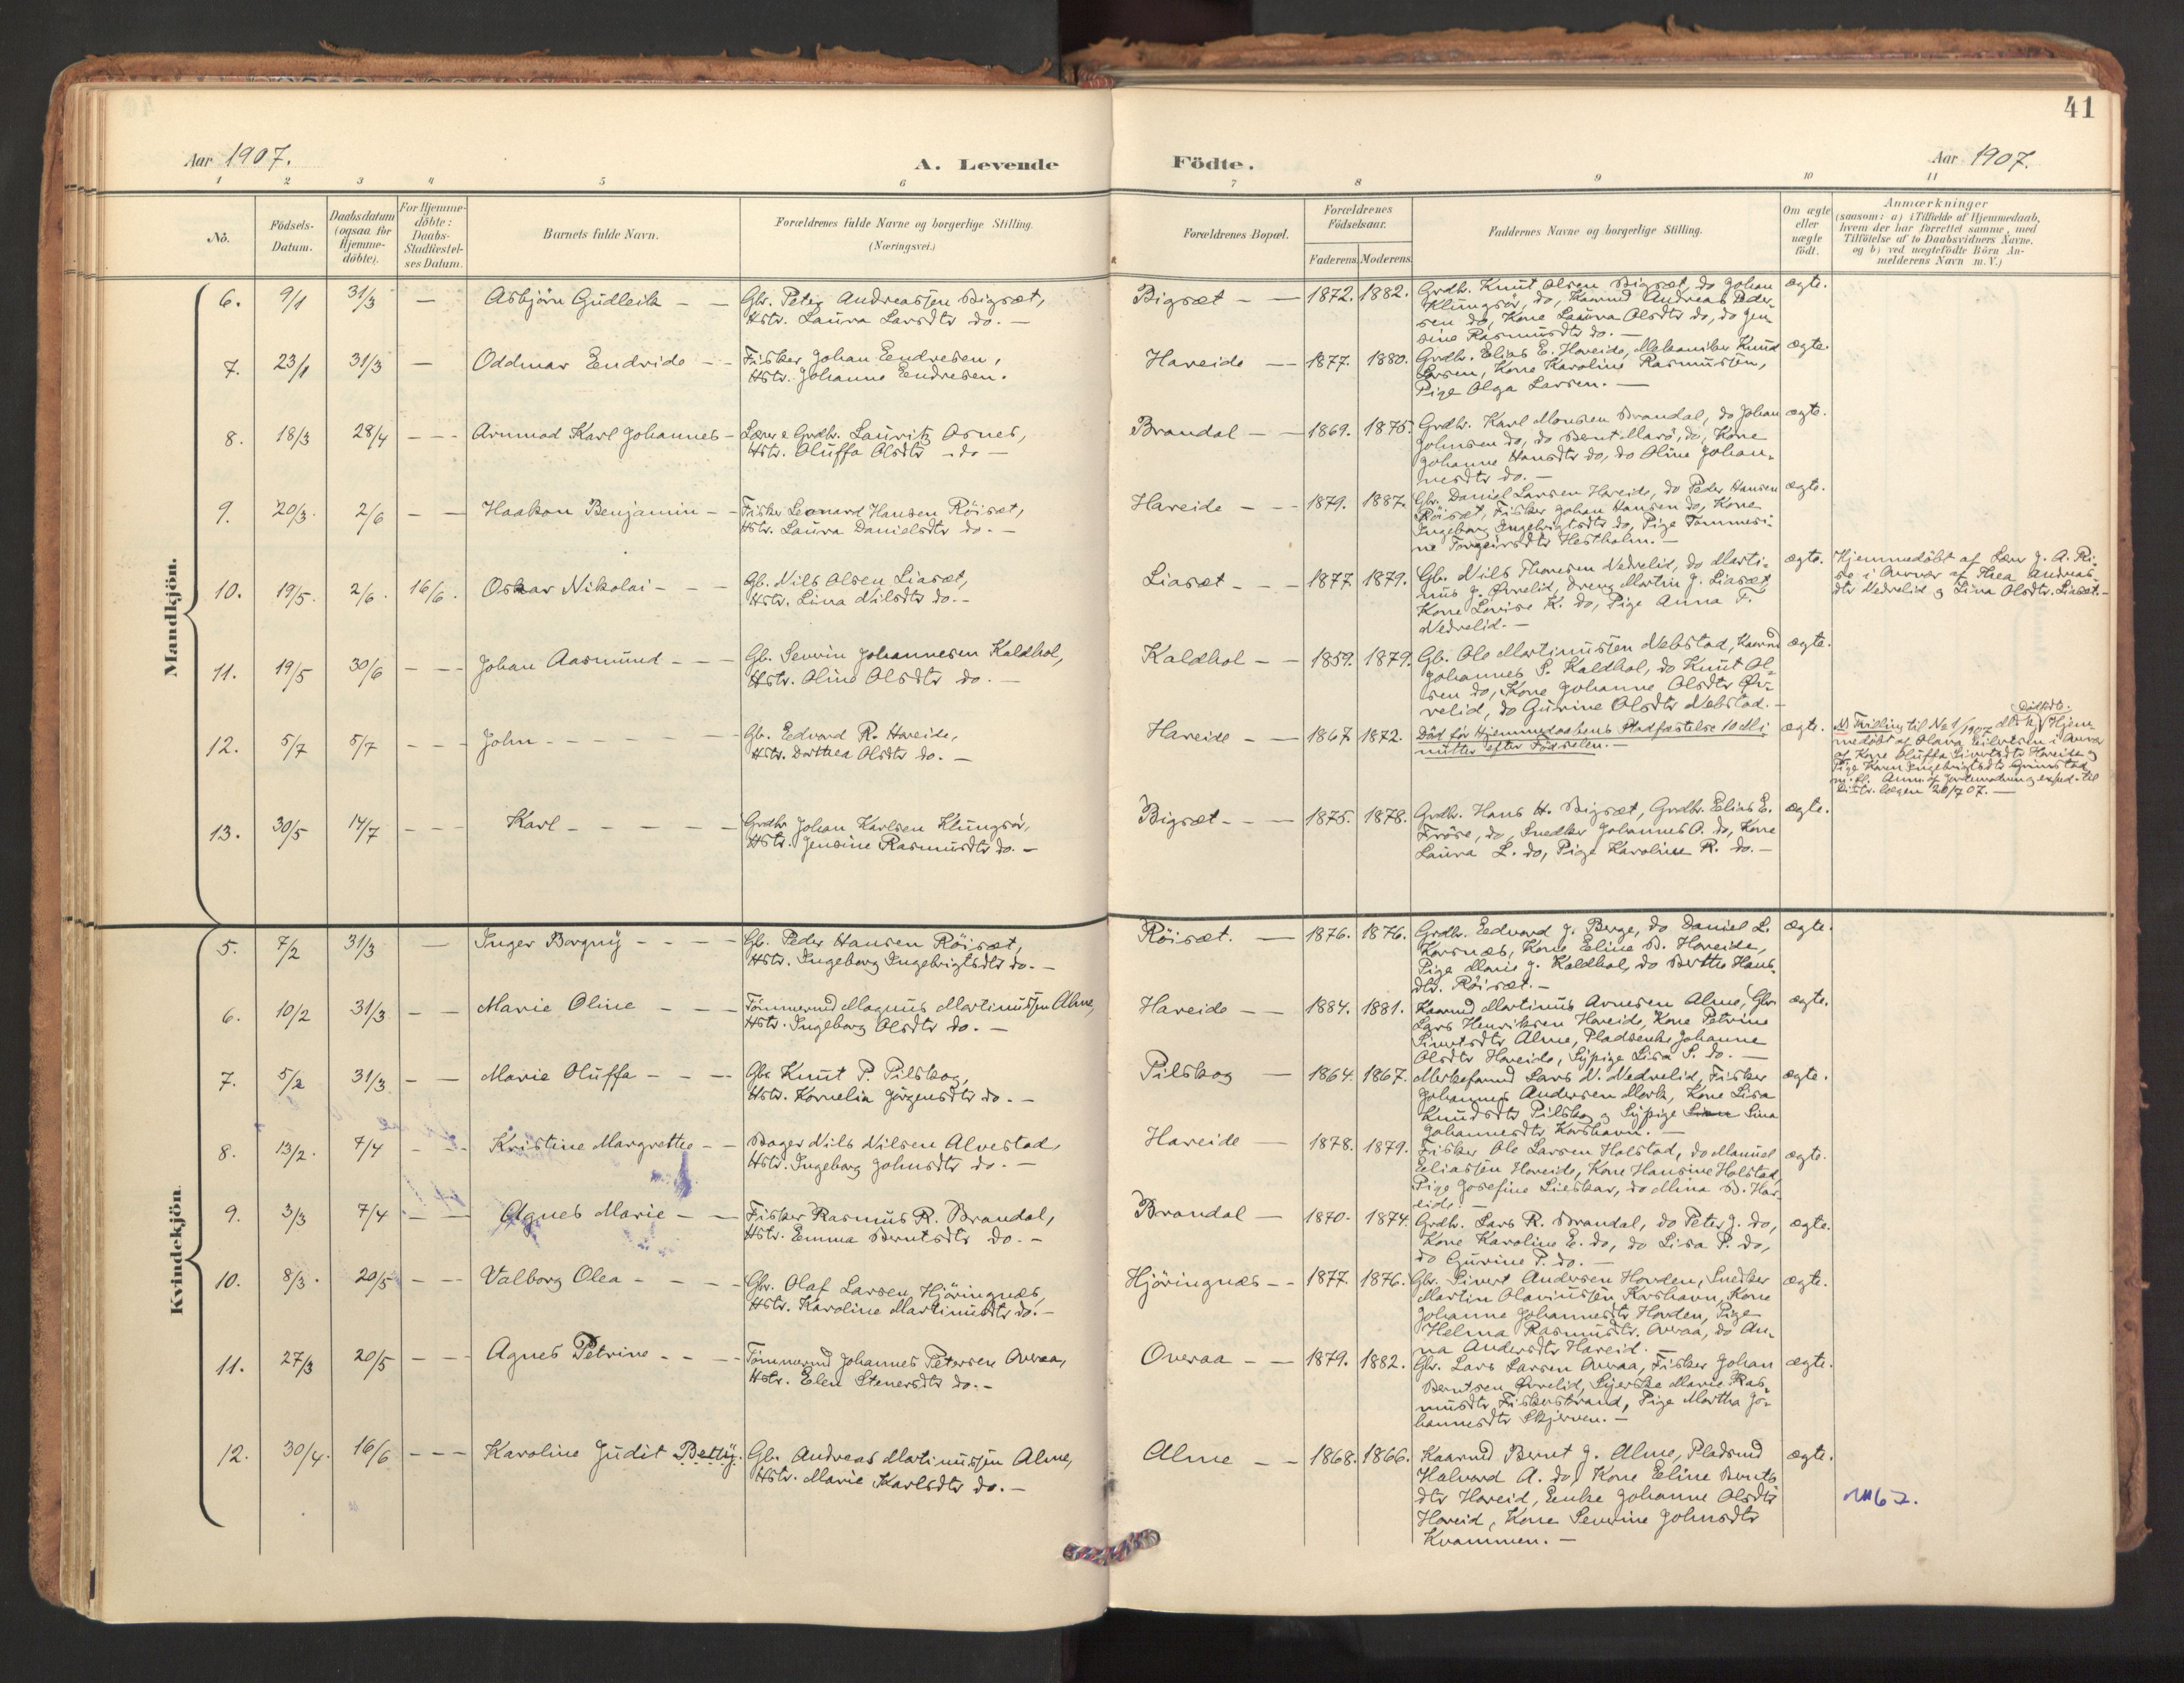 41
Aar 1907.
A. Levende
Födte.
Aar 1907.
1 2 3 4 5 6 7 8 9 10 11
No.
Födsels-
Datum.
Daabsdatum
(ogsaa for
Hjemme-
döbte).
For Hjemme-
döbte:
Daabs-
Stadfæstel-
ses Datum.
Barnets fulde Navn.
Forældrenes fulde Navne og borgerlige Stilling.
(Næringsvei.)
Forældrenes Bopæl.
Forældrenes
Födselsaar.
Faderens. Moderens.
Faddernes Navne og borgerlige Stilling.
Om ægte
eller
uægte
födt.
Anmærkninger
(saasom: a) i Tilfælde af Hjemmedaab,
hvem der har forrettet samme, med
Tilföielse af to Daabsvidners Navne.
og b) ved uægtefödte Börn An-
melderens Navn m. V.)
Mandkjön.
6. 9/1 31/3 — Asbjörn Gudleik — — Gbr. Peter Andreassen Bigsæt,
Hstr. Laura Larsdtr do. —
Bigsæt — — 1872. 1882. Grdbr. Knut Olsen Bigsæt, do Johan
Klungsör, do, Kaarmd Andreas Peder-
sen do, Kone Laura Olsdtr do, do Jen-
sine Rasmusdtr do. —
ægte.
7. 23/1 31/3 — Oddmar Eendride — — Fisker Johan Eendresen,
Hstr. Johanne Eendresen.
Hareide — — 1877. 1880. Grdbr. Elias E. Hareide, Mekaniker Knud
Larsen, Kone Karoline Rasmussen,
Pige Olga Larsen. —
ægte.
8. 18/3 28/4 — — — Arnmod Karl Johannes — Lærer & Grdbr. Lauritz Aarnes,
Hstr. Oluffa Olsdtr — do —
Brandal — — 1869. 1875. Grdbr. Karl Monsen Brandal, do Johan
Johnsen do, do Bernt Marö, do, Kone
Johanne Hansdtr do, do Oline Johan-
nesdtr do. —
ægte.
9. 20/3. 2/6 — — Haakon Benjamin — — Fisker Leonard Hansen Röisæt,
Hstr. Laura Danielsdtr do. —
Hareide — — 1879. 1887. Gbr. Daniel Larsen Hareide, do Peder Hansen
Röisæt, Fisker Johan Hansen do, Kone
Ingeborg Ingebrigtsdtr do, Pige Tommesi-
ne Torgeirsdtr Hestholm. —
ægte.
10. 19/5. 2/6. 16/6. Oskar Nikolai — — Gb. Nils Olsen Liasæt,
Hstr. Lina Nilsdtr do. —
Liasæt — — 1877 1879. Gb. Nils Thoresen Nedrelid, do Marti-
nus J. Øvrelid, Dreng Martin J. Liasæt,
Kone Lovise K. do, Pige Anna T.
Nedrelid. —
ægte. Hjemmedöbt af Lærer J. A. Ri-
se i Overvær af Thea Andreas-
dtr Nedrelid & Lina Olsdtr. Liasæt. —
11. 19/5 30/6 — — — Johan Aasmund — — — Gb. Severin Johannesen Kaldhol,
Hstr. Oline Olsdtr do. —
Kaldhol — — 1859. 1879. Gb. Ole Martinussen Nebstad, Kaarmd
Johannes S. Kaldhol, do Knut Ol-
sen do, Kone Johanne Olsdtr Øv-
relid, do Gurine Olsdtr Nebstad. —
ægte.
12. 5/7 5/7 — — — John — — — — — Gb. Edvard R. Hareide,
Hstr. Dorthea Olsdtr do. —
Hareide — — 1867 1872. Död för Hjemmedaabens Stadfæstelse 10 Mi
nutter efter Födselen. —
ægte. Tvilling til No 1/1907 dödfödte. Hjem-
medöbt af Olava Eilertsen i Overvær
af Kone Oluffa Sivertsdtr Hareide &
Pige Karen Ingebrigtsdtr Grimstad
m. fl. Anm. af Jordemoderen exped. til
Distr. lægen 20/7 07. —
13. 30/5 14/7 — — — Karl — — — — — Grdbr. Johan Karlsen Klungsör,
Hstr. Jensine Rasmusdtr do. —
Bigsæt — — — 1875. 1878. Grdbr. Hans H. Bigsæt, Grdbr. Elias E.
Fröse, do, Snedker Johannes O. do, Kone
Laura L. do, Pige Karoline R. do. —
ægte.
Kvindekjön.
5. 7/2 31/3 — Inger Borgny — — — — Gb. Peder Hansen Röisæt,
Hstr. Ingeborg Ingebrigtsdtr do. —
Röisæt. — 1876. 1876. Grdbr. Edvard J. Berge, do Daniel L.
Korsnæs, Kone Eline B. Hareide,
Pige Marie J. Kaldhol, do Berthe Hans-
dtr. Röisæt. —
ægte.
6. 10/2 31/3 — — Marie Oline — — — Tömmermd Magnus Martinussen Alme,
Hstr. Ingeborg Olsdtr do. —
Hareide — — 1884. 1881. Kaarmd Martinus Arnesen Alme, Gbr.
Lars Henriksen Hareide, Kone Petrine
Sivertsdtr Alme, Pladsenke Johanne
Olsdtr Hareide, Sypige Lisa S. do. —
ægte.
7. 5/2 31/3 — — Marie Oluffa — — — Gbr. Knut P. Pilskog,
Hstr. Kornelia Jörgensdtr do. —
Pilskog — 1864. 1867. Merkefarmd Lars N. Nedrelid, Fisker
Johannes Andersen Mork, Kone Lisa
Knudsdtr Pilskog & Sypige Sina
Johannesdtr Korshavn. —
ægte.
8. 13/2. 7/4 — — — Kristine Margrethe — — Bager Nils Nilsen Alvestad,
Hstr. Ingeborg Johnsdtr do. —
Hareide — 1878. 1879. Fisker Ole Larsen Holstad, do Manuel
Eliassen Hareide, Kone Hansine Holstad,
Pige Josefine Lieskar, do Mina B. Har-
eide. —
ægte.
9. 3/3 7/4 — — Agnes Marie — — Fisker Rasmus R. Brandal,
Hstr. Emma Berntsdtr do. —
Brandal — 1870. 1874. Grdbr. Lars R. Brandal, do Peter J. do,
Kone Karoline E. do, do Lisa P. do,
do Gurine P. do. —
ægte.
10. 8/3. 20/5 — — — Valborg Olea — — — — Gbr. Olaf Larsen Hjöringnæs,
Hstr. Karoline Martinusdtr do. —
Hjöringnæs — — 1877. 1876. Gbr. Sivert Andersen Horden, Snedker
Martin Olavinussen Korshavn, Kone
Johanne Johannesdtr Horden, Pige
Helma Rasmusdtr. Overaa, do An-
na Andersdtr Hareid. —
ægte.
11. 27/3 20/5 — — — Agnes Petrine — — — Tömmermd Johannes Petersen Overaa,
Hstr. Elen Stenersdtr do. —
Overaa — — 1879. 1882. Gbr. Lars Larsen Overaa, Fisker Johan
Berntsen Øvrelid, Syerske Marie Ras-
musdtr Fiskerstrand, Pige Martha Jo-
hannesdtr Skjerven. —
ægte.
12. 30/4. 16/6 — — — Karoline Judit Betty. Gb. Andreas Martinussen Alme,
Hstr. Marie Karlsdtr do. —
Alme — — 1868. 1866. Kaarmd Bernt J. Alme, Pladsmd
Halvard A. do, Kone Eline Bernts
dtr Hareid, Enke Johanne Olsdtr
Hareid, Kone Severine Johnsdtr
Kvammen. —
ægte.